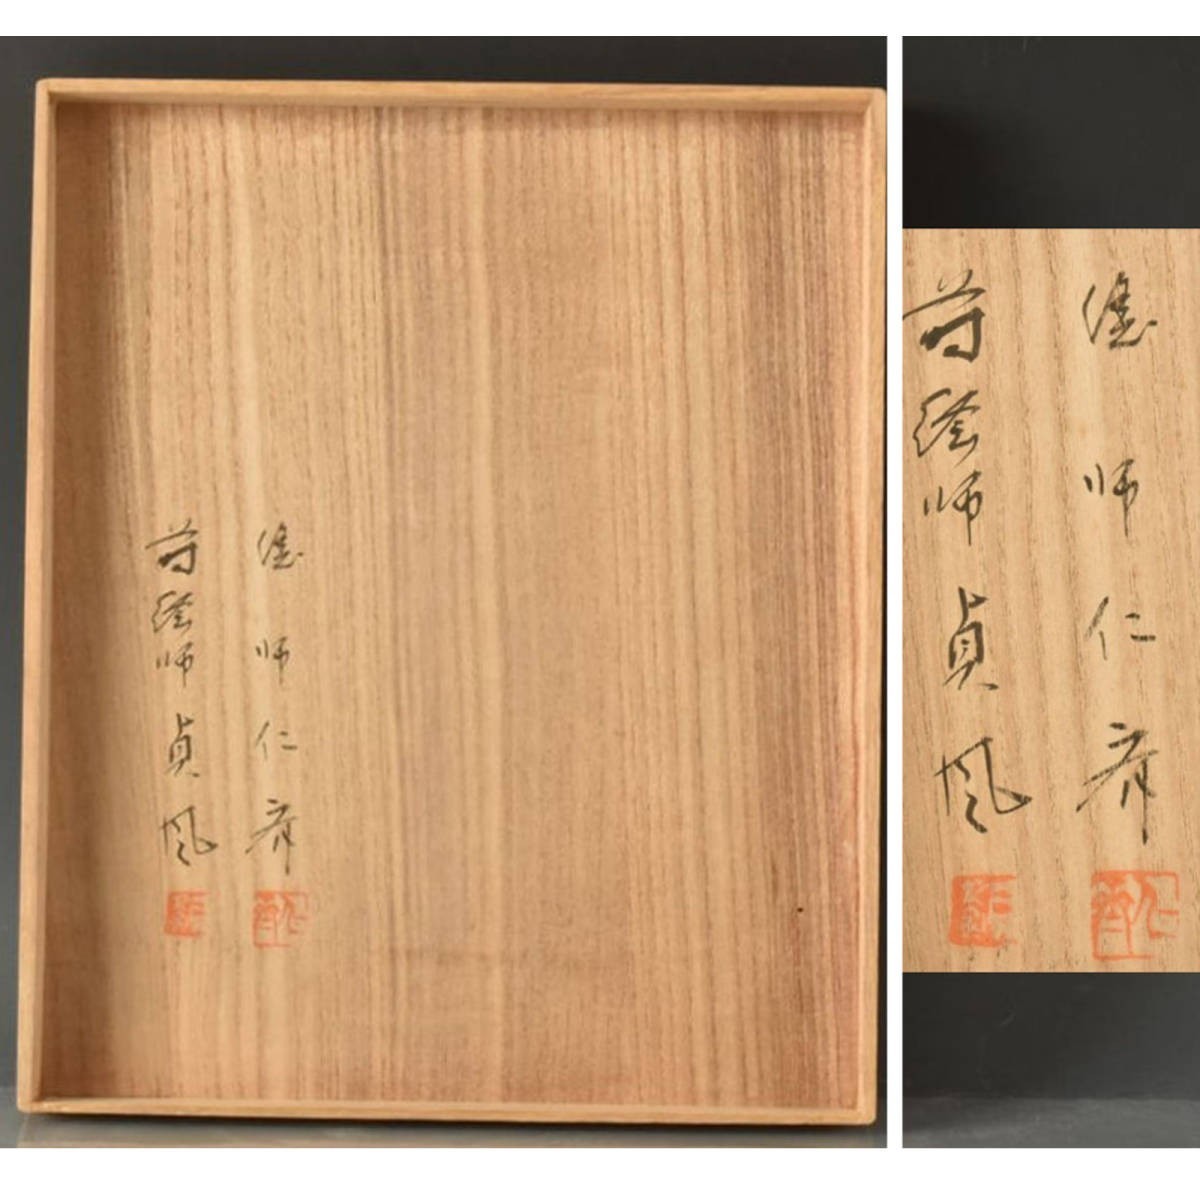 塗師仁斎
蒔絵師貞風
塗師仁斎
蒔絵師貞風